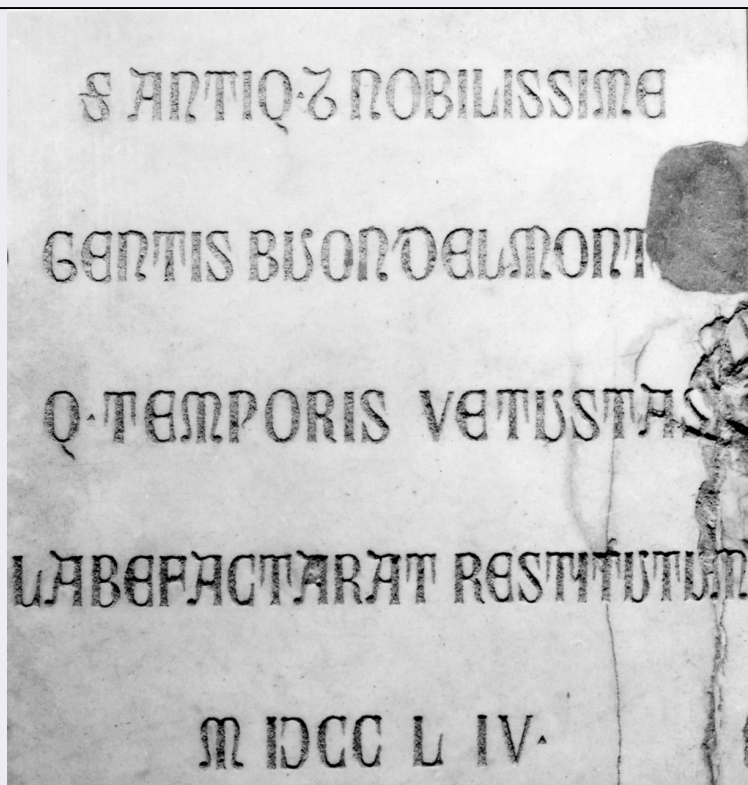 S ANTIQ · Z NOBILISSIME
GENTIS BUONDELMONT
Q · TEMPORIS VETUSTAS
LABEFACTARAT RESTITUTUM
M IↃCC L IV ·